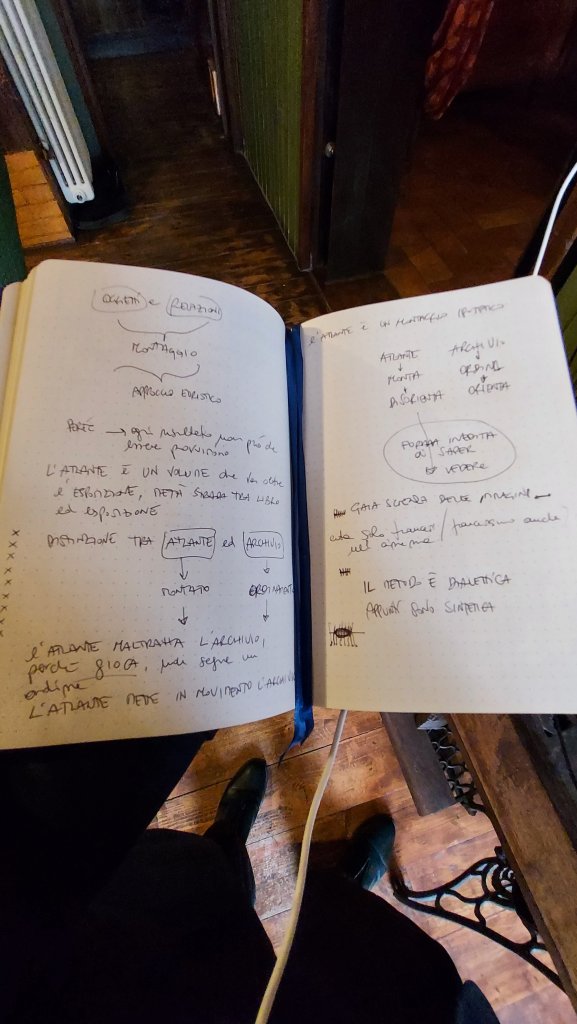 OGGETTI e RELAZIONI
MONTAGGIO
APPROCCIO EURISTICO
ogni risultato non può che
essere provvisorio
L'ATLANTE È UN VOLUME che va oltre
l'ESPOSIZIONE, METÀ STRADA TRA LIBRO
ed ESPOSIZIONE
DISTINZIONE TRA ATLANTE ed ARCHIVIO
MONTATO ORDINAMENTO
l'ATLANTE MALTRATTA L'ARCHIVIO,
perché GIOCA, segue un
ordine
L'ATLANTE METTE IN MOVIMENTO L'ARCHIVIO
l'ATLANTE È UN MONTAGGIO IPOTETICO
ATLANTE ARCHIVIO
MONTA ORDINA
DISORIENTA ORIENTA
FORMA INEDITA
DI SAPER
VEDERE
GAIA SCIENZA DELLE IMMAGINI
IL METODO È DIALETTICA
APPUNTI SONO SINTETICA